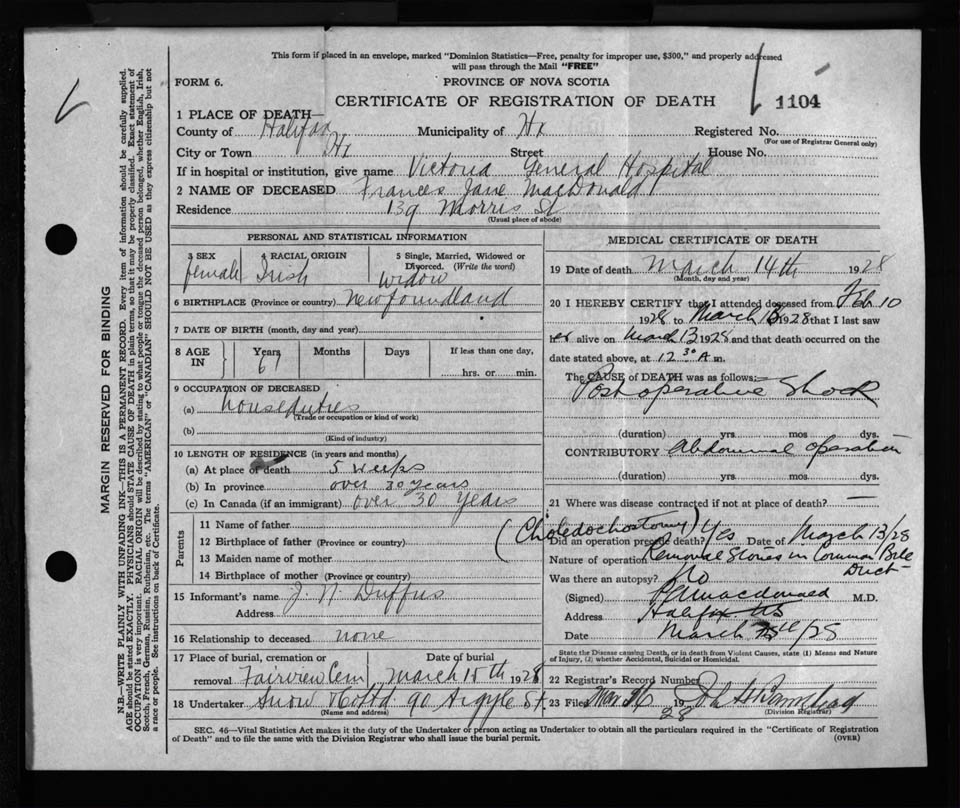 This form if placed in an envelope, marked "Dominion Statistics—Free, penalty for improper use, $300," and properly addressed
will pass through the Mail "FREE"
FORM 6.
PROVINCE OF NOVA SCOTIA
CERTIFICATE OF REGISTRATION OF DEATH
1104
1 PLACE OF DEATH—
County of Halifax Municipality of Hx Registered No.
(For use of Registrar General only)
City or Town Hx Street House No.
If in hospital or institution, give name Victoria General Hospital
2 NAME OF DECEASED Frances Jane MacDonald
Residence 139 Morris St
(Usual place of abode)
PERSONAL AND STATISTICAL INFORMATION
3 SEX
female
4 RACIAL ORIGIN
Irish
5 Single, Married, Widowed or
Divorced. (Write the word)
Widow
6 BIRTHPLACE (Province or country) Newfoundland
7 DATE OF BIRTH (month, day and year)
8 AGE
IN
Years
67
Months
Days
If less than one day,
hrs. or min.
9 OCCUPATION OF DECEASED
(a) houseduties
(Trade or occupation or kind of work)
(b)
(Kind of industry)
10 LENGTH OF RESIDENCE (in years and months)
(a) At place of death 5 weeks
(b) In province over 30 years
(c) In Canada (if an immigrant) over 30 years
Parents
11 Name of father
12 Birthplace of father (Province or country)
13 Maiden name of mother
14 Birthplace of mother (Province or country)
15 Informant's name J. N. Duffus
Address
16 Relationship to deceased none
17 Place of burial, cremation or
removal Fairview Cem
Date of burial
March 15th 1928
18 Undertaker Snow & Co Ltd 90 Argyle St.
(Name and address)
MEDICAL CERTIFICATE OF DEATH
19 Date of death March 14th 1928
(Month, day and year)
20 I HEREBY CERTIFY that I attended deceased from Feb 10
1928 to March 13 1928 that I last saw
er alive on March 13 1928 and that death occurred on the
date stated above, at 12 30 A m.
The CAUSE of DEATH was as follows:
Post operative Shock
(duration) yrs. mos. dys.
CONTRIBUTORY Abdominal operation
(duration) yrs. mos. dys.
21 Where was disease contracted if not at place of death? —
(Choledochostomy)
Did an operation precede death? Yes Date of March 13/28
Nature of operation Removal Stones in Common Bile
Duct
Was there an autopsy? No
(Signed) Macdonald M.D.
Address Halifax NS
Date March /28
State the Disease causing Death, or in death from Violent Causes, state (1) Means and Nature
of Injury, (2) whether Accidental, Suicidal or Homicidal.
22 Registrar's Record Number
23 Filed Mar 1928
(Division Registrar)
SEC. 46—Vital Statistics Act makes it the duty of the Undertaker or person acting as Undertaker to obtain all the particulars required in the "Certificate of Registration
of Death" and to file the same with the Division Registrar who shall issue the burial permit.
(OVER)
MARGIN RESERVED FOR BINDING
N.B.—WRITE PLAINLY WITH UNFADING INK—THIS IS A PERMANENT RECORD. Every item of information should be carefully supplied.
AGE should be stated EXACTLY. PHYSICIANS should STATE CAUSE OF DEATH in plain terms, so that it may be properly classified. Exact statement of
OCCUPATION is very important. RACIAL ORIGIN will be described by stating to what people or tongue the deceased person belonged, whether English, Irish,
Scotch, French, German, Russian, Ruthenian, etc. The terms "AMERICAN" or "CANADIAN" SHOULD NOT BE USED as they express citizenship but not
a race or people. See instructions on back of Certificate.